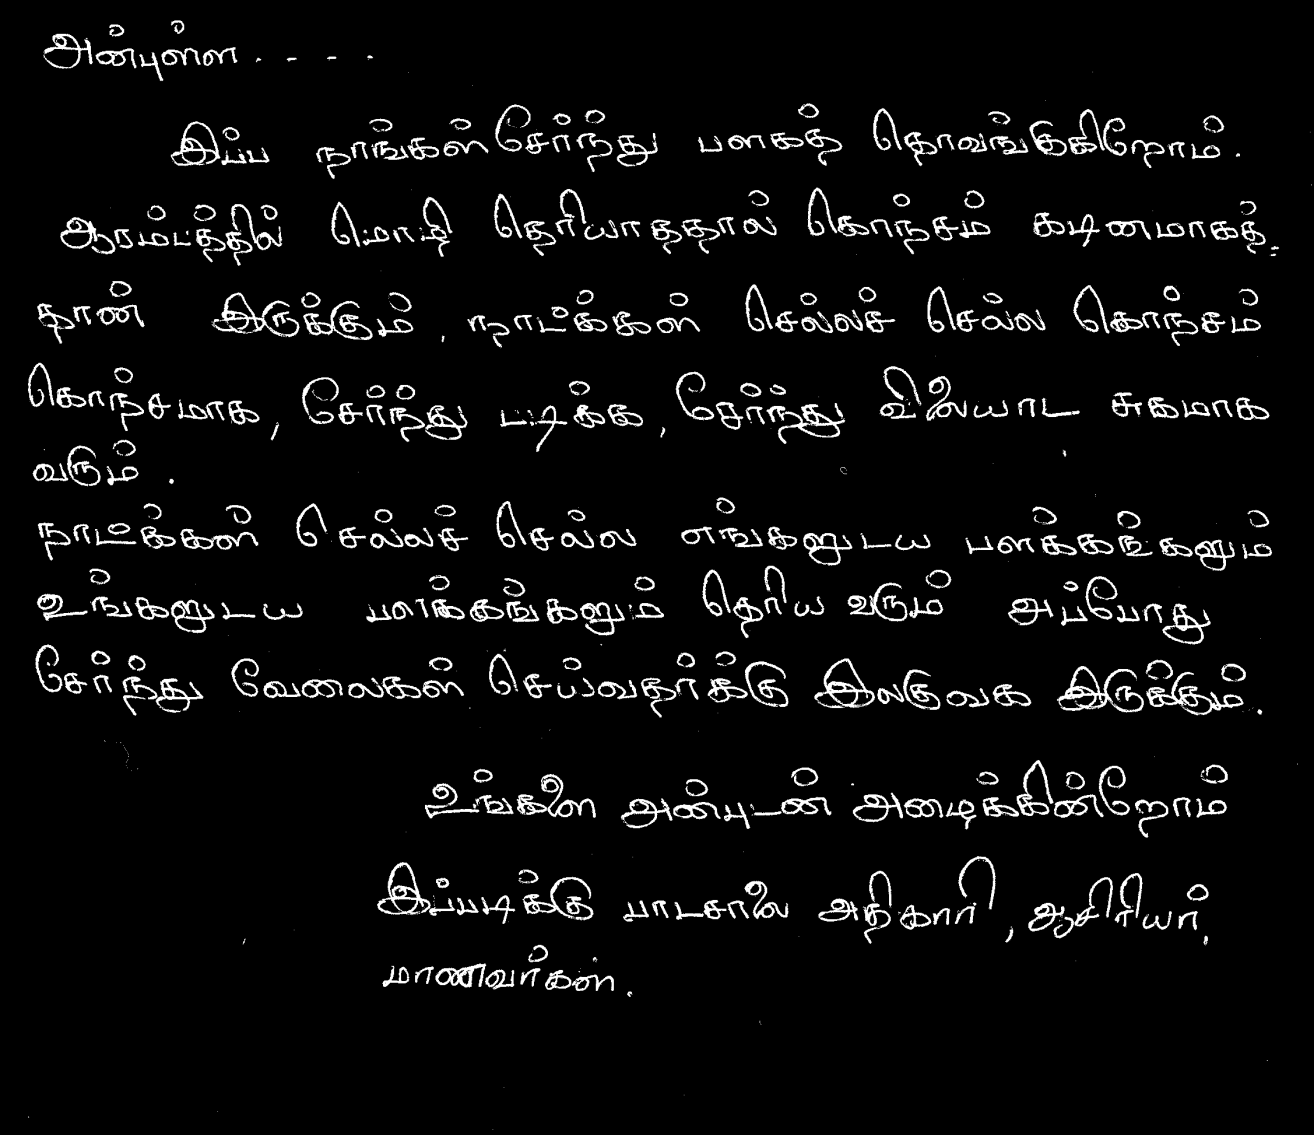 அன்புள்ள . - - .
இப்ப நாங்கள் சேர்ந்து பளகத் தொவங்குகிறோம்.
ஆரம்பத்தில் மொழி தெரியாததால் கொந்சம் கடினமாகத்
தான் இருக்கும், நாட்க்கள் செல்லச் செல்ல கொந்சம்
கொந்சமாக, சேர்ந்து படிக்க, சேர்ந்து விலையாட சுகமாக
வரும்.
நாட்க்கள் செல்லச் செல்ல எங்களுடைய பளக்கங்களும்
உங்களுடைய பளக்கங்களும் தெரிய வரும் அப்போது
சேர்ந்து வேலைகள் செய்வதர்க்கு இலகுவக இருக்கும்.
உங்களை அன்புடன் அழைக்கின்றோம்
இப்படிக்கு பாடசாலை அதிகாரி, ஆசிரியர்,
மாணவர்கள்.